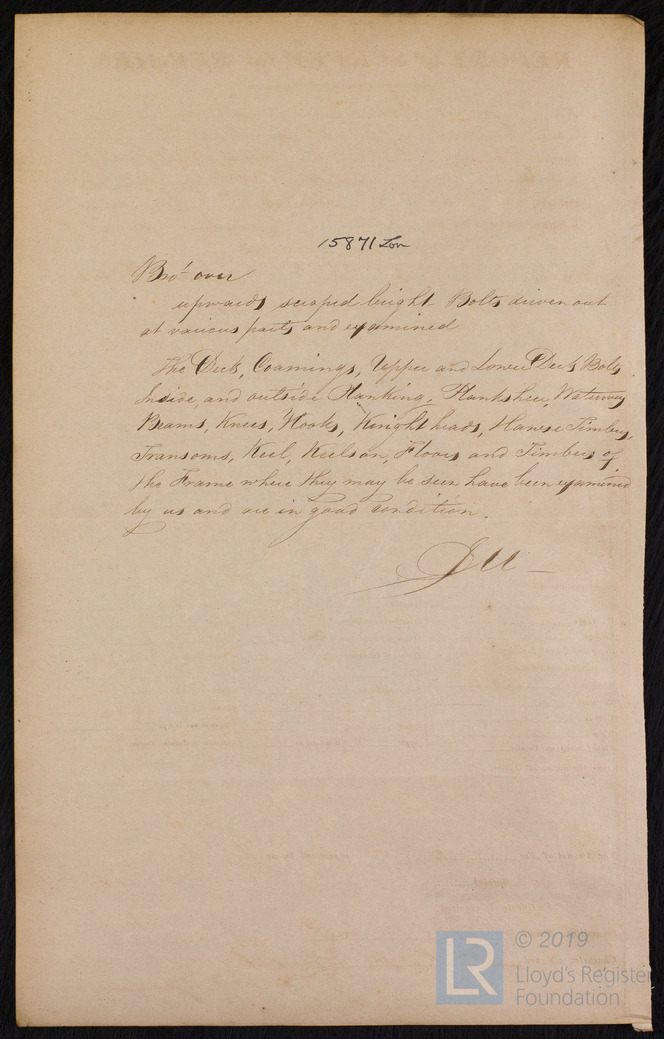 15871 Lon
Bro't over
upwards scraped bright Bolts driven out
at various parts and examined
The Deck, Coamings, Upper and Lower Deck Bolts
Inside and outside Planking, Planksheer, Waterways
Beams, Knees, Hooks, Knightheads, Hawse Timbers,
Transoms, Keel, Keelson, Floors and Timbers of
the Frame where they may be seen have been examined
by us and are in good condition.
LR
© 2019
Lloyd's Register
Foundation